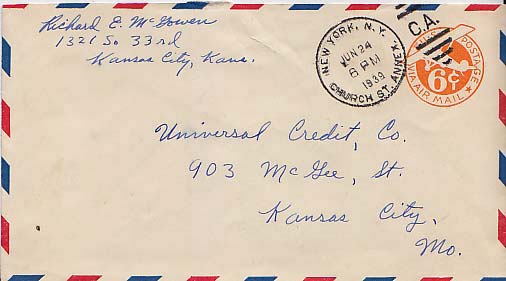 Richard E. McGowen
1321 So. 33rd
Kansas City, Kans.
NEW YORK, N.Y.
JUN 24
6 PM
1939
CHURCH ST. ANNEX
CA.
U.S. POSTAGE
6¢
VIA AIR MAIL
Universal Credit, Co.
903 McGee, St.
Kansas City,
Mo.